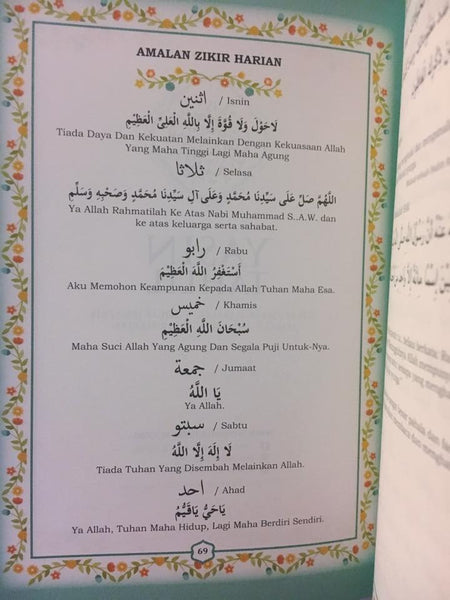 AMALAN ZIKIR HARIAN
اثنين / Isnin
لَاحَوْلَ وَلَا قُوَّةَ إِلَّا بِاللَّهِ الْعَلِيِّ الْعَظِيْمِ
Tiada Daya Dan Kekuatan Melainkan Dengan Kekuasaan Allah
Yang Maha Tinggi Lagi Maha Agung
ثلاثا / Selasa
اللَّهُمَّ صَلِّ عَلَى سَيِّدِنَا مُحَمَّدٍ وَعَلَى آلِ سَيِّدِنَا مُحَمَّدٍ وَصَحْبِهِ وَسَلِّمِ
Ya Allah Rahmatilah Ke Atas Nabi Muhammad S..A.W. dan
ke atas keluarga serta sahabat.
رابو / Rabu
أَسْتَغْفِرُ اللَّهَ الْعَظِيْمِ
Aku Memohon Keampunan Kepada Allah Tuhan Maha Esa.
خميس / Khamis
سُبْحَانَ اللَّهِ الْعَظِيْمِ
Maha Suci Allah Yang Agung Dan Segala Puji Untuk-Nya.
جمعة / Jumaat
يَا اللَّهُ
Ya Allah.
سبتو / Sabtu
لَا إِلَهَ إِلَّا اللَّهُ
Tiada Tuhan Yang Disembah Melainkan Allah.
احد / Ahad
يَاحَيُّ يَاقَيُّمُ
Ya Allah, Tuhan Maha Hidup, Lagi Maha Berdiri Sendiri.
69